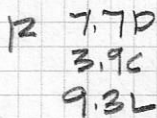 12 7.7D
3.9C
9.3L